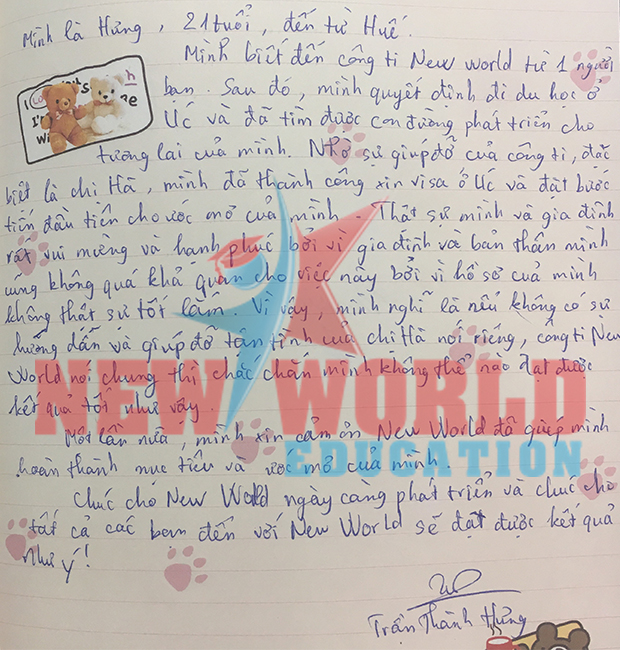 Mình là Hưng, 21 tuổi, đến từ Huế.
Mình biết đến công ti New world từ 1 người
bạn. Sau đó, mình quyết định đi du học ở
Úc và đã tìm được con đường phát triển cho
tương lai của mình. Nhờ sự giúp đỡ của công ti, đặc
biệt là chị Hà, mình đã thành công xin visa ở Úc và đạt bước
tiến đầu tiên cho ước mơ của mình. Thật sự mình và gia đình
rất vui mừng và hạnh phúc bởi vì gia đình và bản thân mình
cũng không quá khả quan cho việc này bởi vì hồ sơ của mình
không thật sự tốt lắm. Vì vậy, mình nghĩ là nếu không có sự
hướng dẫn và giúp đỡ tận tình của chị Hà nói riêng, công ti New
World nói chung thì chắc chắn mình không thể nào đạt được
kết quả tốt như vậy.
Một lần nữa, mình xin cảm ơn New World đã giúp mình
hoàn thành mục tiêu và ước mơ của mình.
Chúc cho New World ngày càng phát triển và chúc cho
tất cả các bạn đến với New World sẽ đạt được kết quả
như ý!
Trần Thành Hưng
NEW WORLD
EDUCATION